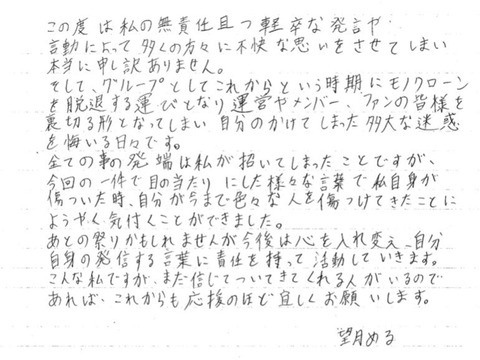 この度は私の無責任且つ軽卒な発言や
言動によって多くの方々に不快な思いをさせてしまい
本当に申し訳ありません。
そして、グループとしてこれからという時期にモノクローン
を脱退する運びとなり運営やメンバー、ファンの皆様を
裏切る形となってしまい自分のかけてしまった多大な迷惑
を悔いる日々です。
全ての事の発端は私が招いてしまったことですが、
今回の一件で目の当たりにした様々な言葉で私自身が
傷ついた時、自分が今まで色々な人を傷つけてきたことに
ようやく気付くことができました。
あとの祭りかもしれませんが今後は心を入れ変え、自分
自身の発信する言葉に責任を持って活動していきます。
こんな私ですが、まだ信じてついてきてくれる人がいるので
あれば、これからも応援のほど宜しくお願いします。
望月める